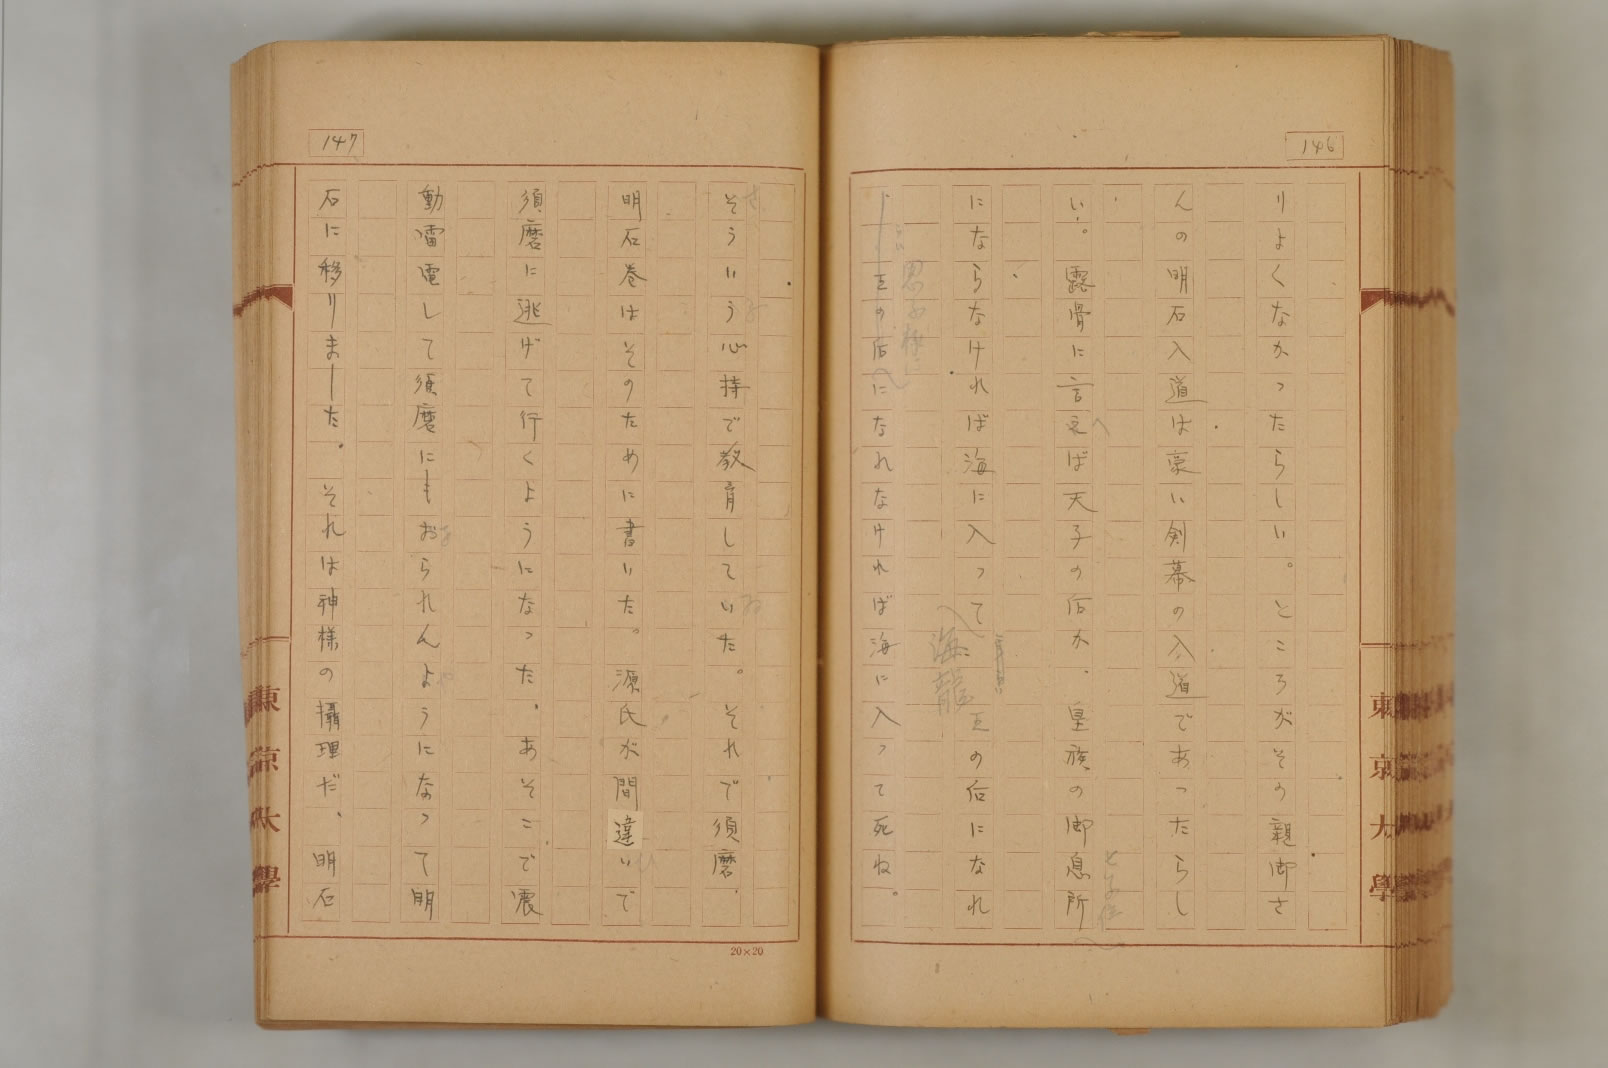 146
りよくなかったらしい。ところがその親御さ
んの明石入道は豪い剣幕の入道であったらし
い。露骨に言えば天子の后か、皇族の御息所
へ
にならなければ海に入って
海龍
王の后になれ
王の后になれなければ海に入って死ね。
東京大學
147
そういう心持で教育していた。それで須磨、
明石巻はそのために書いた。源氏が間違いで
ひ
須磨に逃げて行くようになった。あそこで震
動雷電して須磨にもおられんようになって明
石に移りました。それは神様の攝理だ、明石
20×20
東京大學